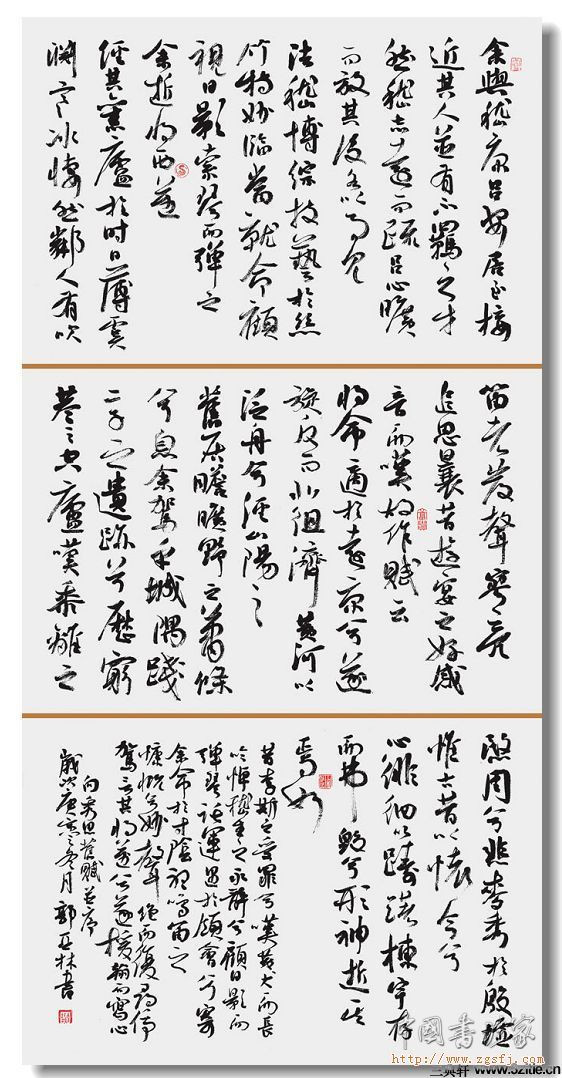 余與嵇康呂安居止接
近其人並有不羈之才
然嵇志遠而疏呂心曠
而放其後各以事見
法嵇博綜技藝於絲
竹特妙臨當就命顧
視日影索琴而彈之
余逝將西邁
經其舊廬於时日薄虞
淵寒冰悽然鄰人有吹
笛者發聲寥亮
追思曩昔遊宴之好感
音而嘆故作賦云
將命適於遠京兮遂
旋反而北徂濟黃河以
泛舟兮經山陽之
舊居瞻曠野之蕭條
兮息余駕乎城隅踐
二子之遺跡兮歷窮
巷之空廬嘆黍離之
愍周兮悲麥秀於殷墟
惟古昔以懷今兮
心徘徊以躊躇棟宇存
而弗毀兮形神逝其
焉如
昔李斯之受罪兮嘆黃犬而長
吟悼嵇生之永辭兮顧日影而
彈琴託運遇於領會兮寄
余命於寸陰聽鳴笛之
慷慨兮妙聲絕而復尋停
駕言其將邁兮遂援翰而寫心
向秀思舊賦並序
歲次庚寅冬月郭亞林書
中國書家
http://www.zgsfj.com